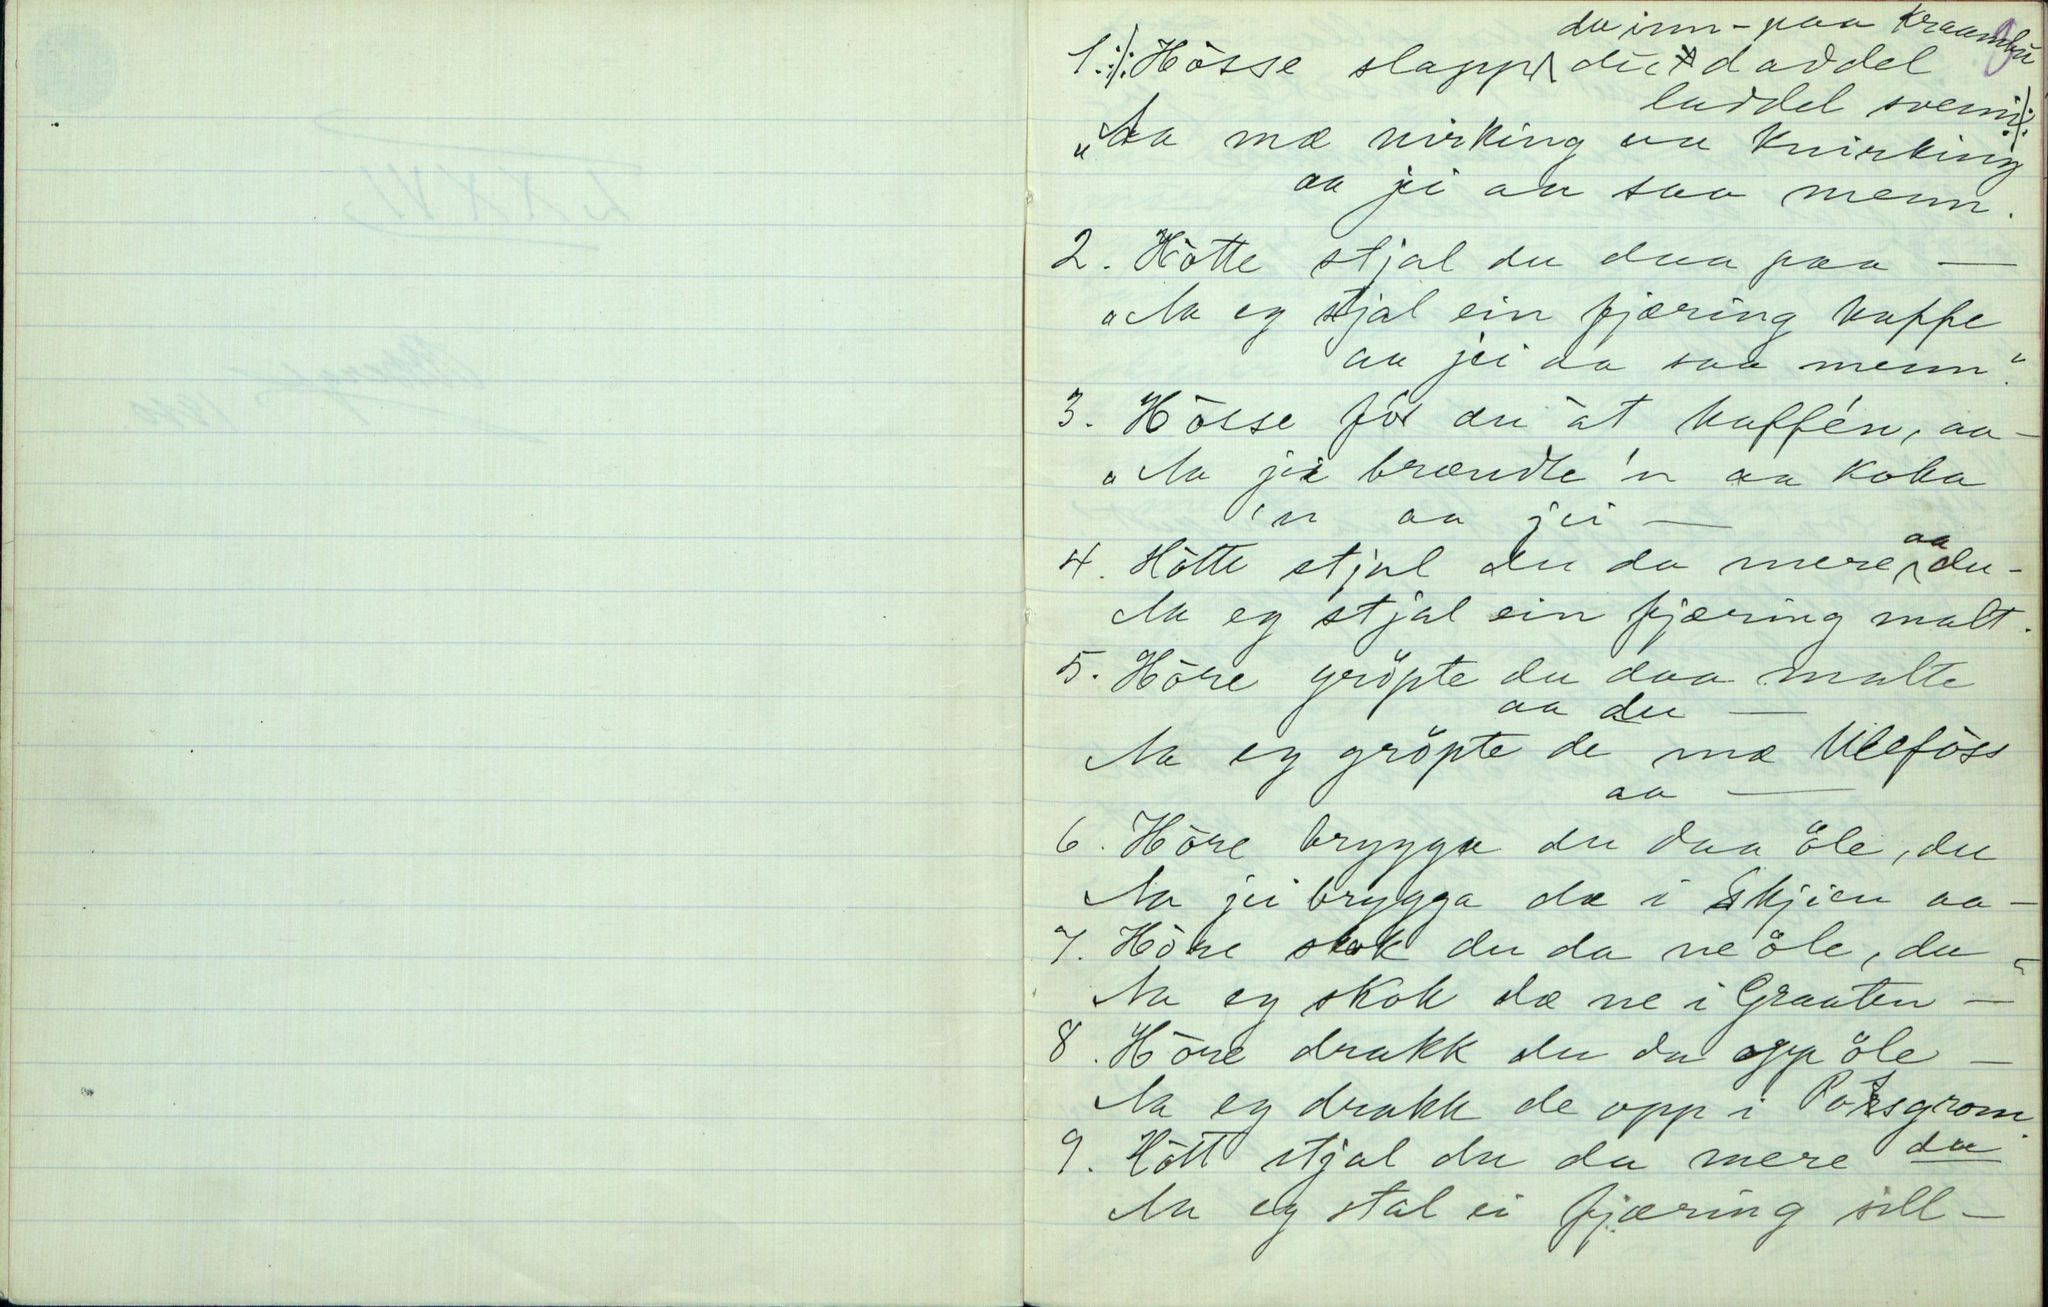 du inn - paa Kraambu
1. :/: Hösse slapp du daddel
luddel svenn :/:
"Aa mæ virking aa knirking
aa jei aa saa menn.
2. Hötte stjal du daa paa —
"Aa eg stjal ein fjæring kaffe
aa jei aa saa menn."
3. Hösse for du åt kaffén, aa —
"Aa jei brændte 'n aa koka
'n aa jei —
4. Hötte stjal du da mere aa du -
Aa eg stjal ein fjæring malt.
5. Höre gröpte du daa malte
aa du —
Aa eg gröpte de mæ Uleföss
aa —
6. Höre brygga du daa öle, du
Aa jei brygga dæ i Skjien aa —
7. Höre skok du da ne öle, du -
Aa eg skok dæ ne i Graaten —
8. Höre drakk du da opp öle —
Aa eg drakk de opp i Porsgrom.
9. Hött stjal du da mere du
Aa eg stal ei fjæring sill —